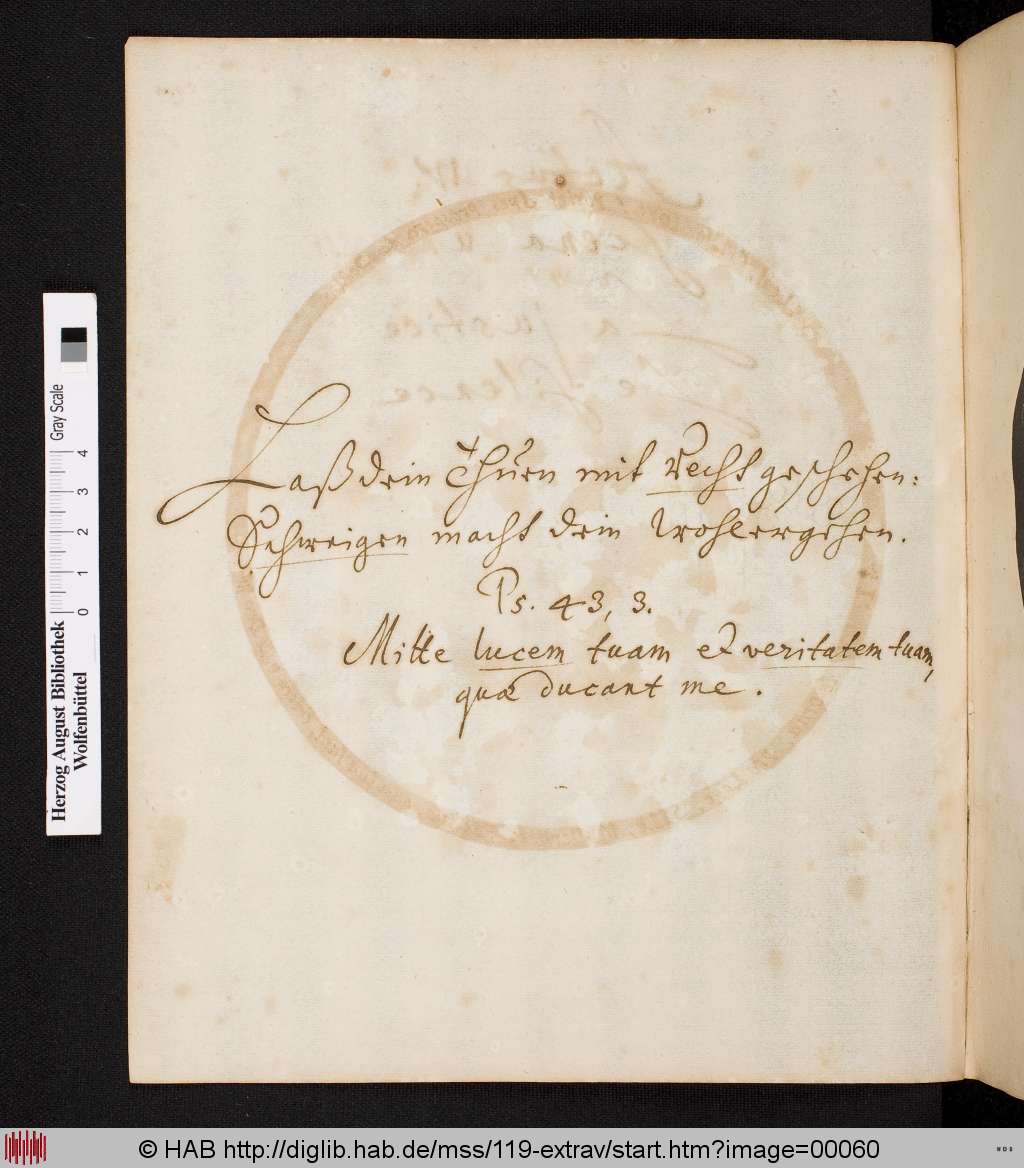 Laß dein Thuen mit recht geschehen:
Schweigen macht dein Wohlergehen.
Ps. 43, 3.
Mitte lucem tuam et veritatem tuam,
quæ ducant me.
Herzog August Bibliothek
Wolfenbüttel
0 1 2 3 4
Gray Scale
© HAB http://diglib.hab.de/mss/119-extrav/start.htm?image=00060